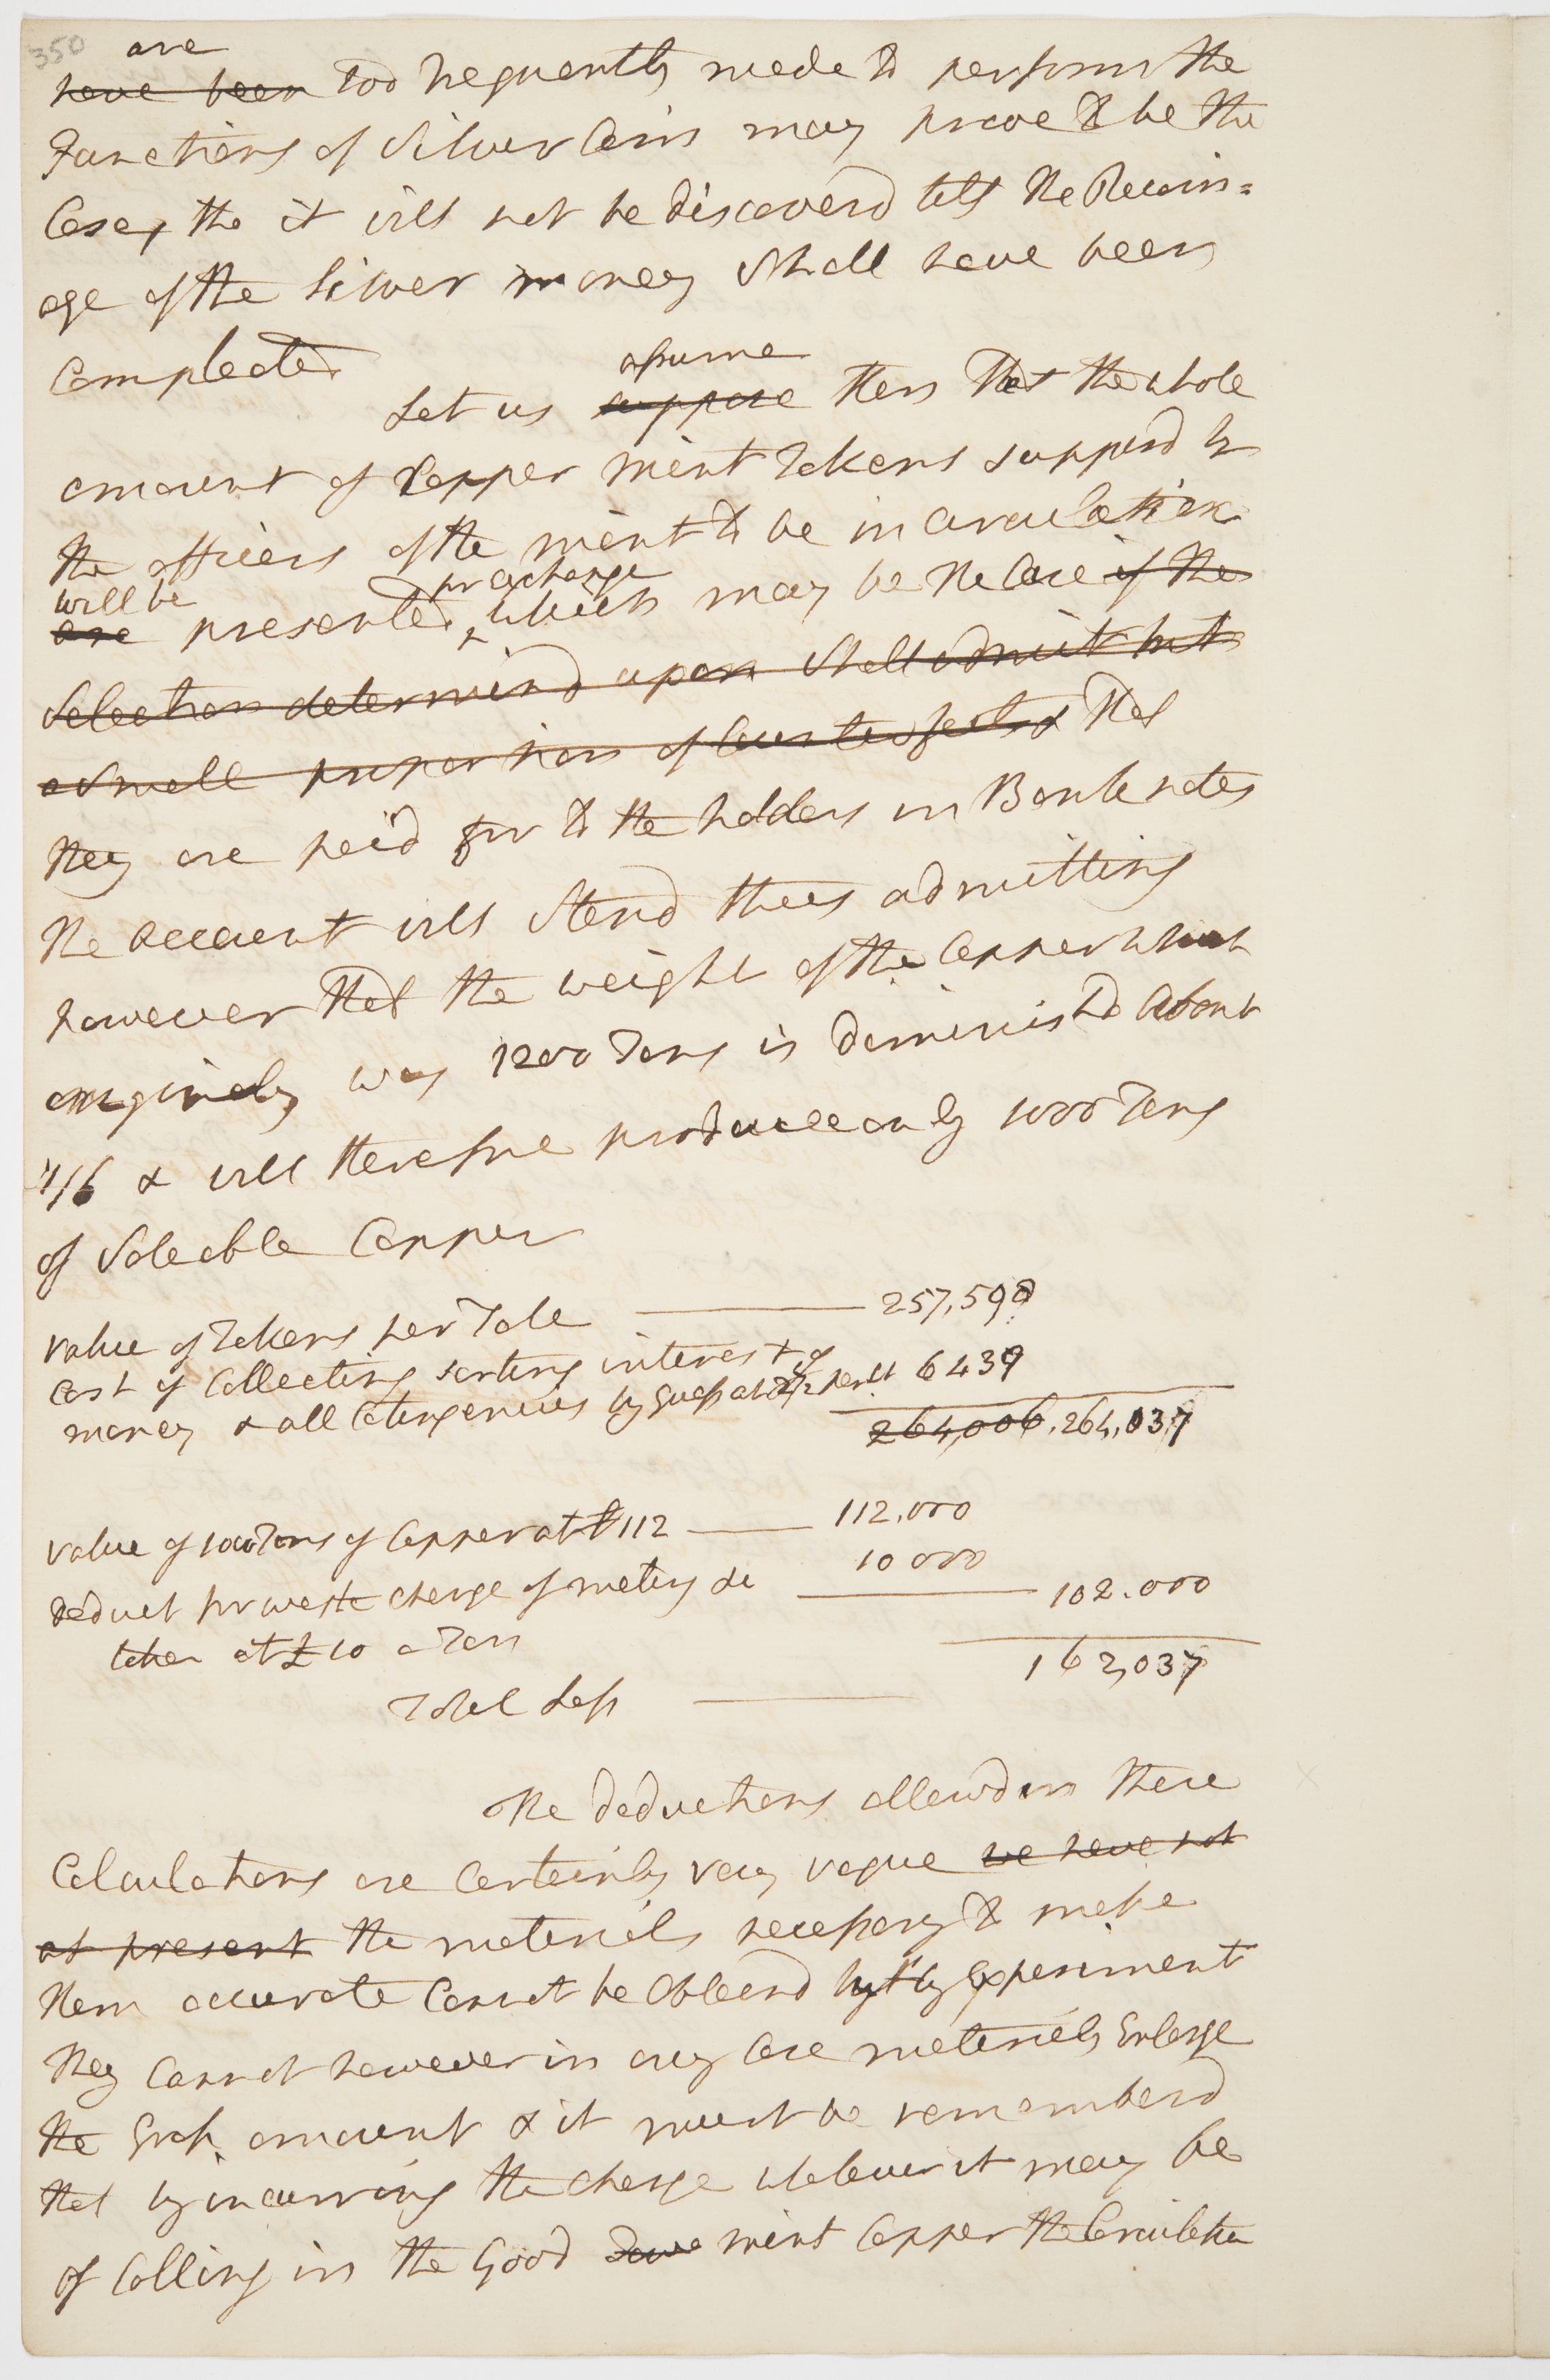 350
are
have been too frequently made to perform the
Functions of Silver Coin may prove to be the
Case, tho it will not be discoverd till the Recoin=
age of the Silver money Shall have been
Compleated
assume
Let us suppose then that the whole
amount of Copper mint Tokens supposd by
the officers of the mint to be in Circulation
will be for exchange
are presented, which may be the Case if the
Selection determind upon Shall admit but
a Small proportion of Counterfeits & that
they are paid for to the holders in Bank notes
the account will Stand thus admitting
however that the weight of the Copper which
originaly was 1200 Tons is diminishd about
1/6 & will therefore produce only 1000 Tons
of Saleable Copper
value of Tokens per Tale 257,598
Cost of Collecting sorting interest of
money & all Contingencies by Guess at 2 1/2 per Ct 6439
264,006. 264,037
value of 1000 Tons of Copper at £112 112.000
deduct for waste charge of melting &c 10 000
102.000
taken at £10 a Ton
162,037
Total Loss
The deductions allowd in these
Calculations are Certainly very vague we have not
at present the materials necessary to make
them accurate Cannot be Obtaind but by Experiment
they Cannot however in any Case materialy Enlarge
the Gross amount & it must be rememberd
that by incurring the charge whatever it may be
of Calling in the Good mint Copper the Circulation